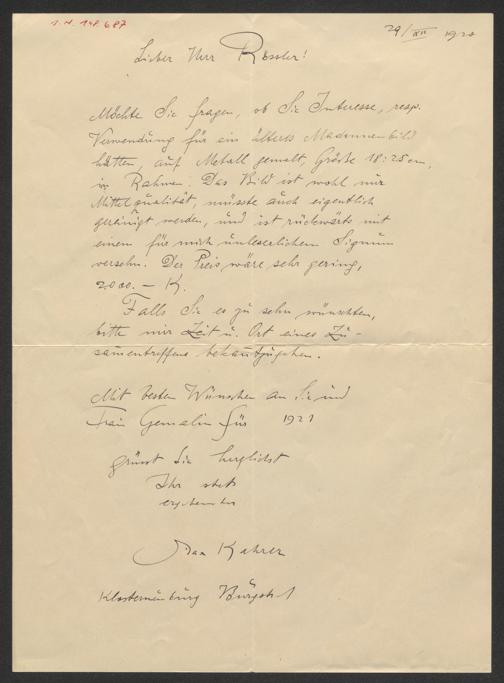 I.N. 148.687
29/XII 1920
Lieber Herr Rössler!
Möchte Sie fragen, ob Sie Interesse, resp.
Verwendung für ein älteres Madonnenbild
hätten, auf Metall gemalt, Größe 18:25 cm,
in Rahmen. Das Bild ist wohl nur
Mittelqualität, müsste auch eigentlich
gereinigt werden, und ist rückwärts mit
einem für mich unleserlichem Signum
versehn. Der Preis wäre sehr gering,
2000.– K.
Falls Sie es zu sehn wünschten,
bitte mir Zeit u. Ort eines Zu-
samentreffens bekanntzugeben.
Mit besten Wünschen an Sie und
Frau Gemalin für 1921
grüsst Sie herzlichst
Ihr stets
ergebenster
Max Kahrer
Klosterneuburg